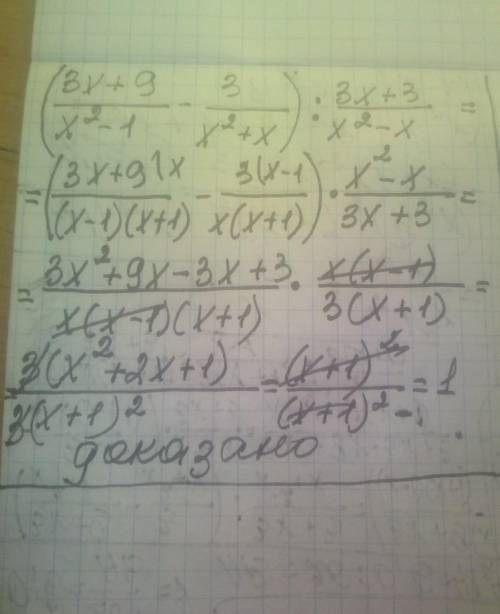 (3x+9/x²-1 - 3/x²+x) : 3x+3/x²-x =
= (3x+9\x/(x-1)(x+1) - 3\x-1/x(x+1)) · x²-x/3x+3 =
= 3x²+9x-3x+3/x(x-1)(x+1) · x(x-1)/3(x+1) =
3(x²+2x+1)/3(x+1)² = (x+1)²/(x+1)² = 1
доказано